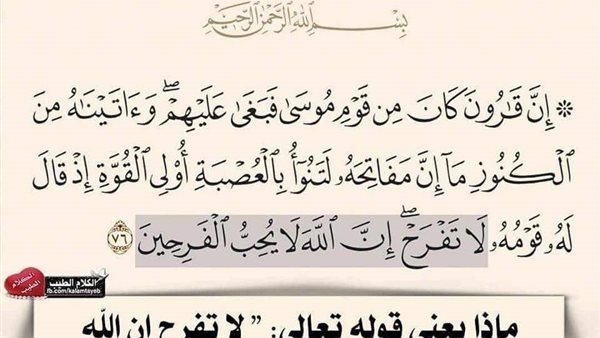 بِسْمِ اللَّهِ الرَّحْمَٰنِ الرَّحِيمِ
۞ إِنَّ قَٰرُونَ كَانَ مِن قَوْمِ مُوسَىٰ فَبَغَىٰ عَلَيْهِمْ ۖ وَءَاتَيْنَٰهُ مِنَ
ٱلْكُنُوزِ مَآ إِنَّ مَفَاتِحَهُۥ لَتَنُوٓأُ بِٱلْعُصْبَةِ أُو۟لِى ٱلْقُوَّةِ إِذْ قَالَ
لَهُۥ قَوْمُهُۥ لَا تَفْرَحْ ۖ إِنَّ ٱللَّهَ لَا يُحِبُّ ٱلْفَرِحِينَ ٧٦
الكلام الطيب
الكلام الطيب
fb.com/kalamtayeb
ماذا يعني قوله تعالى: ” لا تفرح إن الله